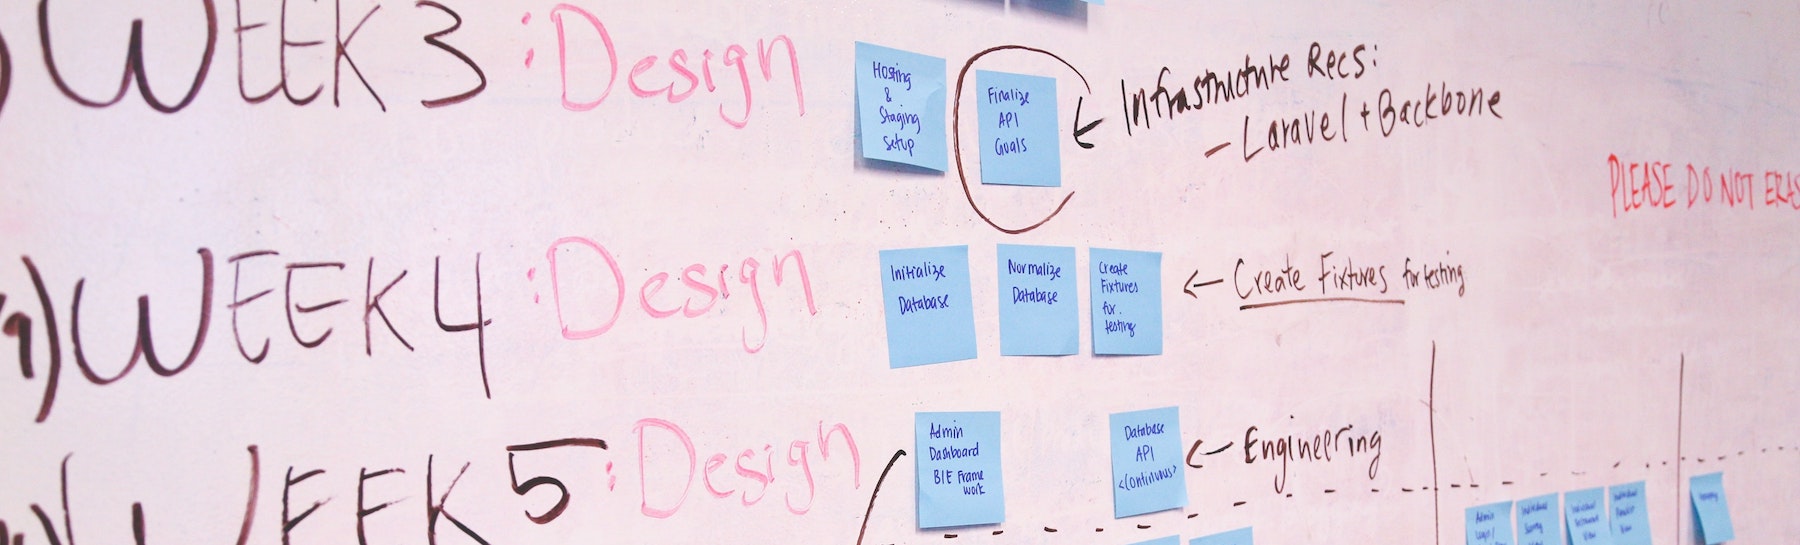 WEEK 3 : Design
Hosting
&
Staging
Setup
Finalize
API
Goals
Infrastructure Recs:
- Laravel + Backbone
PLEASE DO NOT
4) WEEK 4 : Design
Initialize
Database
Normalize
Database
Create
Fixtures
for
testing
Create Fixtures for testing
WEEK 5 : Design
Admin
Dashboard
BIE Frame
work
Database
API
<continuous>
Engineering
Admin
Login/
Individual
View
Individual
View
Individual
View